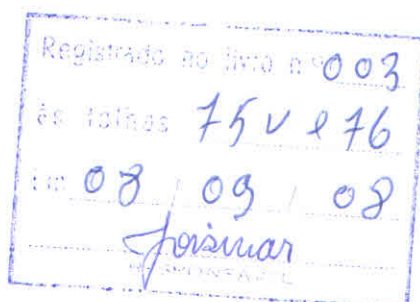 Registrado no livro nº 003
às folhas 75 v e 76
Em 08 / 09 / 08
Joismar
RESPONSÁVEL